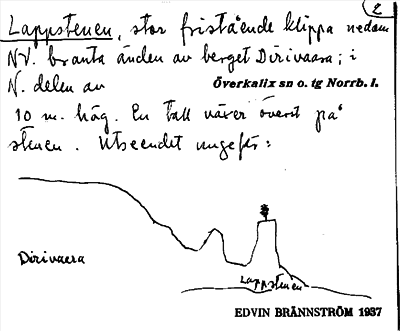 2
Lappstenen, stor fristående klippa nedom
NV. branta änden av berget Dirivaara; i
N. delen av Överkalix sn o. tg Norrb. l.
10 m. hög. En tall växer överst på
stenen. Utseendet ungefär:
Dirivaara
Lappstenen
EDVIN BRÄNNSTRÖM 1937